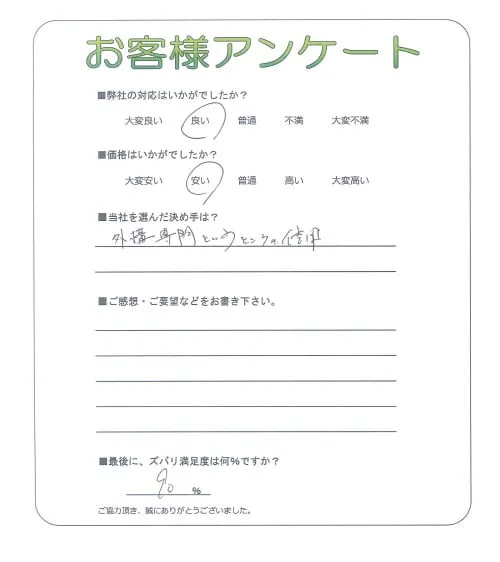 お客様アンケート
■弊社の対応はいかがでしたか？
大変良い 良い 普通 不満 大変不満
■価格はいかがでしたか？
大変安い 安い 普通 高い 大変高い
■当社を選んだ決め手は？
外構専門というところの信用
■ご感想・ご要望などをお書き下さい。
■最後に、ズバリ満足度は何％ですか？
90 %
ご協力頂き、誠にありがとうございました。